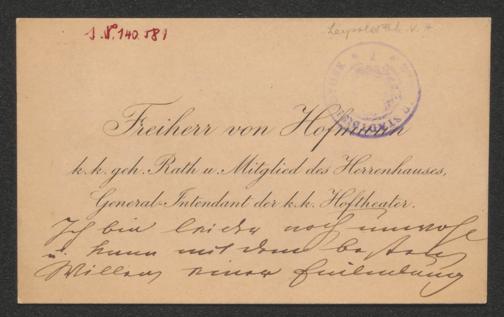 J. N. 140.581
Freiherr von Hofmann
k. k. geh. Rath u. Mitglied des Herrenhauses,
General-Intendant der k. k. Hoftheater.
Ich bin leider noch unwohl
u. kann mit dem besten
Willen einer Einladung